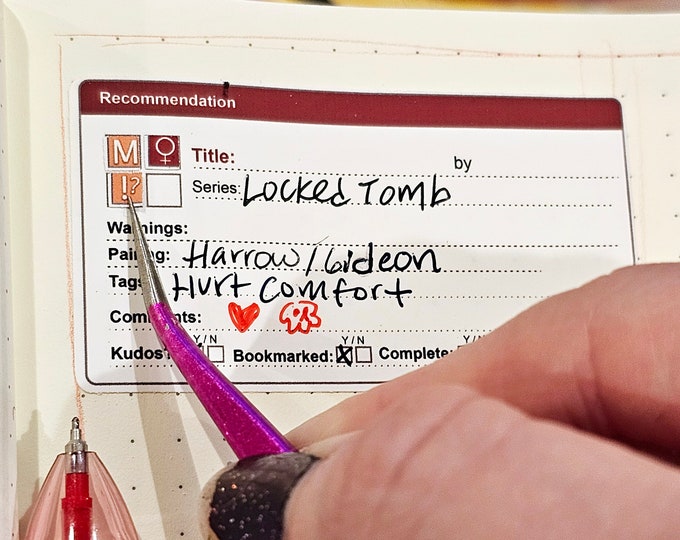 Recommendation
M ♀ Title: by
!? Series: Locked Tomb
Warnings:
Pairing: Harrow/Gideon
Tags Hurt Comfort
Comments:
Y/N Y/N
Kudos Bookmarked: X Complete: